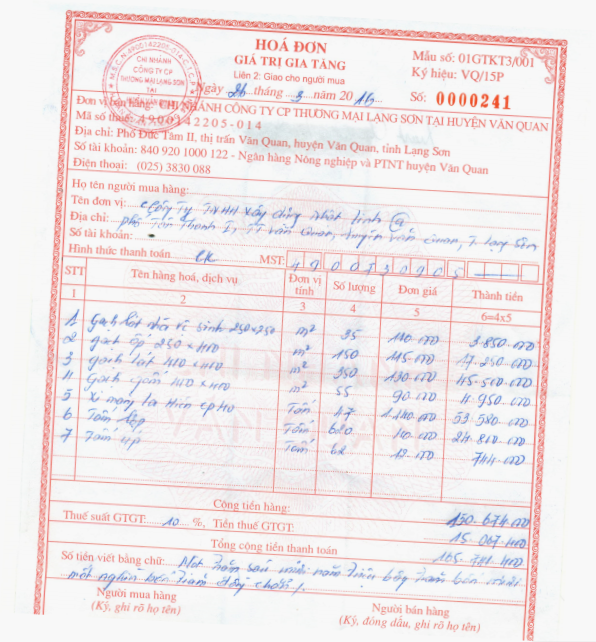 HOÁ ĐƠN
GIÁ TRỊ GIA TĂNG
Liên 2: Giao cho người mua
Mẫu số: 01GTKT3/001
Ký hiệu: VQ/15P
Số: 0000241
CHI NHÁNH
CÔNG TY CP
THƯƠNG MẠI LẠNG SƠN
TẠI
Ngày 26 tháng 3 năm 20
Đơn vị bán hàng: CHI NHÁNH CÔNG TY CP THƯƠNG MẠI LẠNG SƠN TẠI HUYỆN VĂN QUAN
Mã số thuế: 4900142205-014
Địa chỉ: Phố Đức Tâm II, thị trấn Văn Quan, huyện Văn Quan, tỉnh Lạng Sơn
Số tài khoản: 840 920 1000 122 - Ngân hàng Nông nghiệp và PTNT huyện Văn Quan
Điện thoại: (025) 3830 088
Họ tên người mua hàng:
Tên đơn vị: Công Ty TNHH Xây dựng Nhật Linh
Địa chỉ: phố Tân Thanh 1, TT Văn Quan, huyện Văn Quan, T. Lạng Sơn
Số tài khoản:
Hình thức thanh toán CK MST:
STT Tên hàng hoá, dịch vụ Đơn vị tính Số lượng Đơn giá Thành tiền
1 2 3 4 5 6=4x5
1 gạch lát 250x250 m² 35 110.000 3.850.000
2 gạch ốp 250x400 m² 150 115.000 17.250.000
3 gạch lát 400x400 m² 350 130.000 45.500.000
4 Gạch 400x400 m² 55 90.000 4.950.000
5 Xi măng Tấn 47 1.140.000 53.580.000
6 Tấm lợp Tấm 620 40.000 24.800.000
7 Tấm úp Tấm 62 12.000 744.000
Cộng tiền hàng: 150.674.000
Thuế suất GTGT: 10 %, Tiền thuế GTGT: 15.067.400
Tổng cộng tiền thanh toán 165.741.400
Số tiền viết bằng chữ: Một trăm sáu mươi năm triệu bảy trăm bốn mươi
một nghìn bốn trăm đồng chẵn/.
Người mua hàng Người bán hàng
(Ký, ghi rõ họ tên) (Ký, đóng dấu, ghi rõ họ tên)